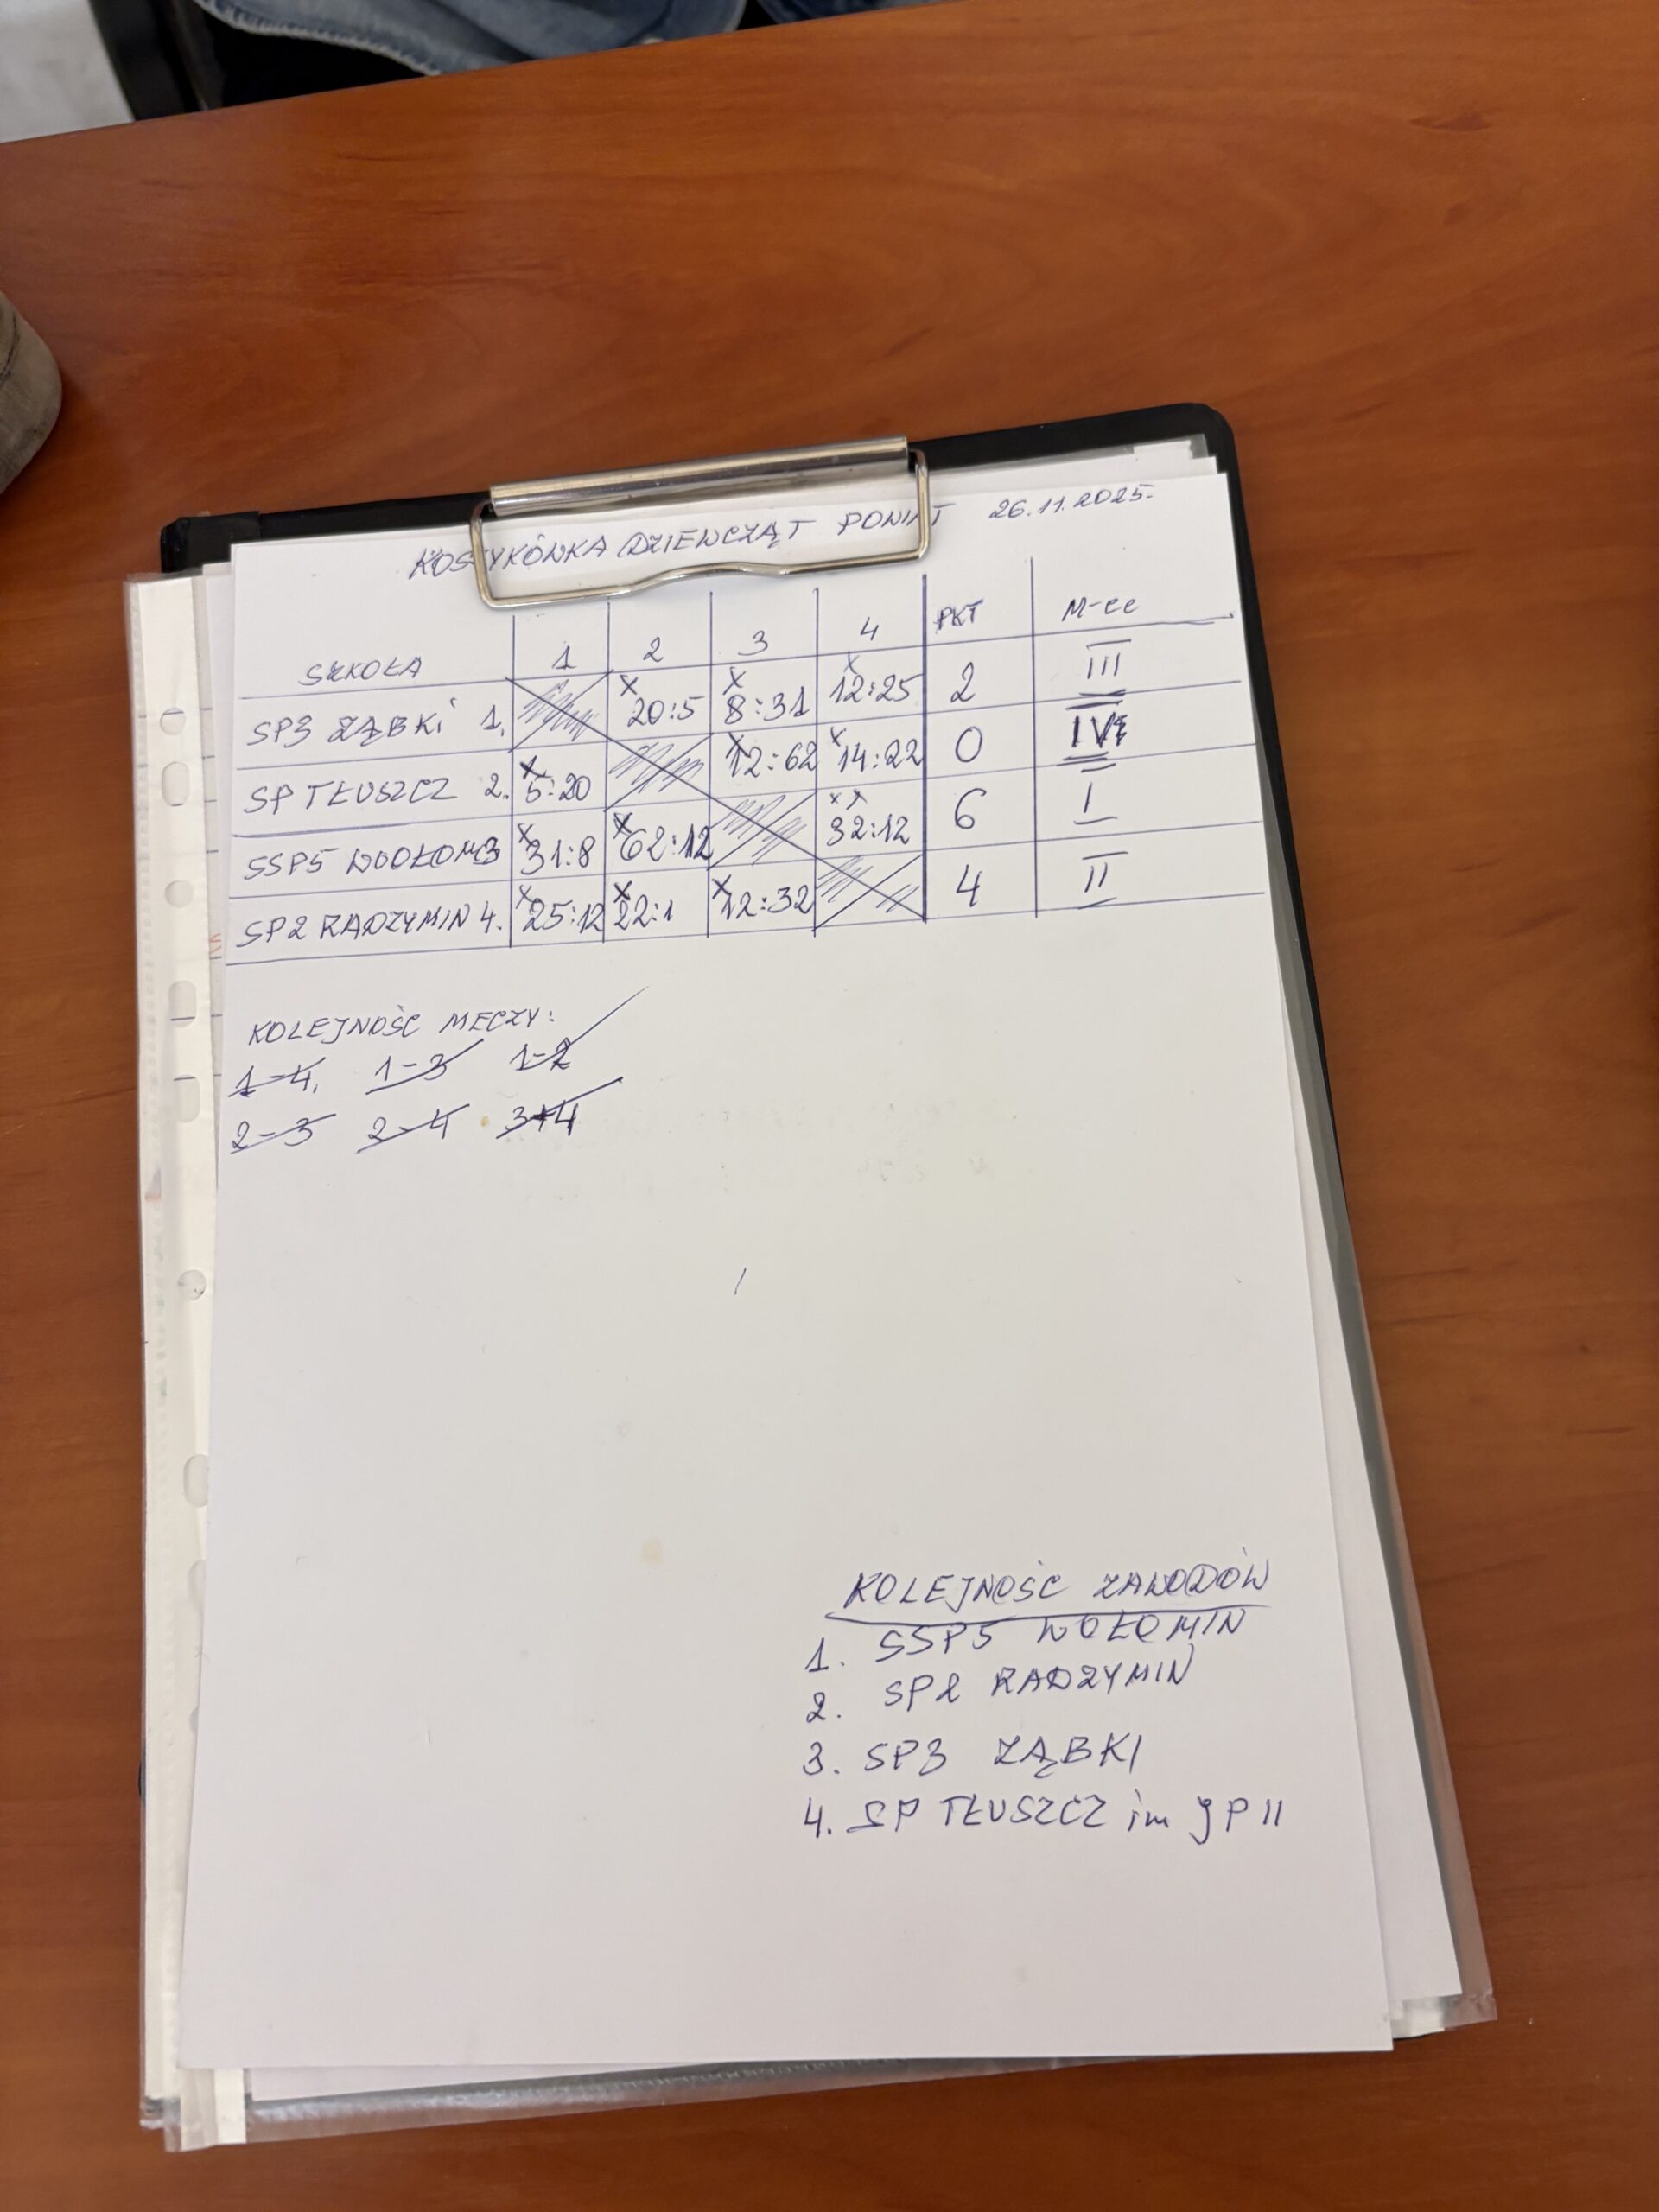 KOSZYKÓWKA DZIEWCZĄT POWIAT 26.11.2025.
SZKOŁA 1 2 3 4 PKT M-ce
SP3 ZĄBKI 1. X 20:5 X 8:31 X 12:25 2 III
SP TŁUSZCZ 2. X 5:20 X 12:62 X 14:22 0 IV
SSP5 WOŁOM 3 X 31:8 X 62:12 X X 32:12 6 I
SP2 RADZYMIN 4. X 25:12 X 22:1 X 12:32 4 II
KOLEJNOŚĆ MECZY:
1-4. 1-3 1-2
2-3 2-4 3-4
KOLEJNOŚĆ ZAWODÓW
1. SSP5 WOŁOMIN
2. SP2 RADZYMIN
3. SP3 ZĄBKI
4. SP TŁUSZCZ im JP II